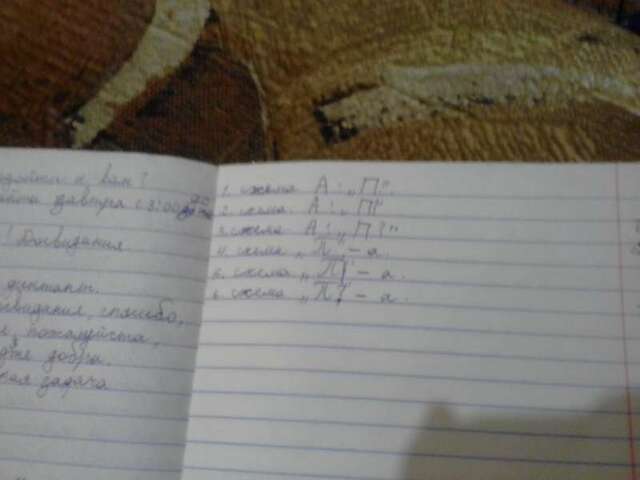 к вам?
завтра с 3:00 до
! Досвидания.
диктант.
досвидания, спасибо,
пожалуйста,
добра.
задача
1. схема А: „П".
2. схема. А: „П!"
3. схема А: „П?"
4. схема „П", - а.
5. схема „П!" - а.
6. схема „П?" - а.